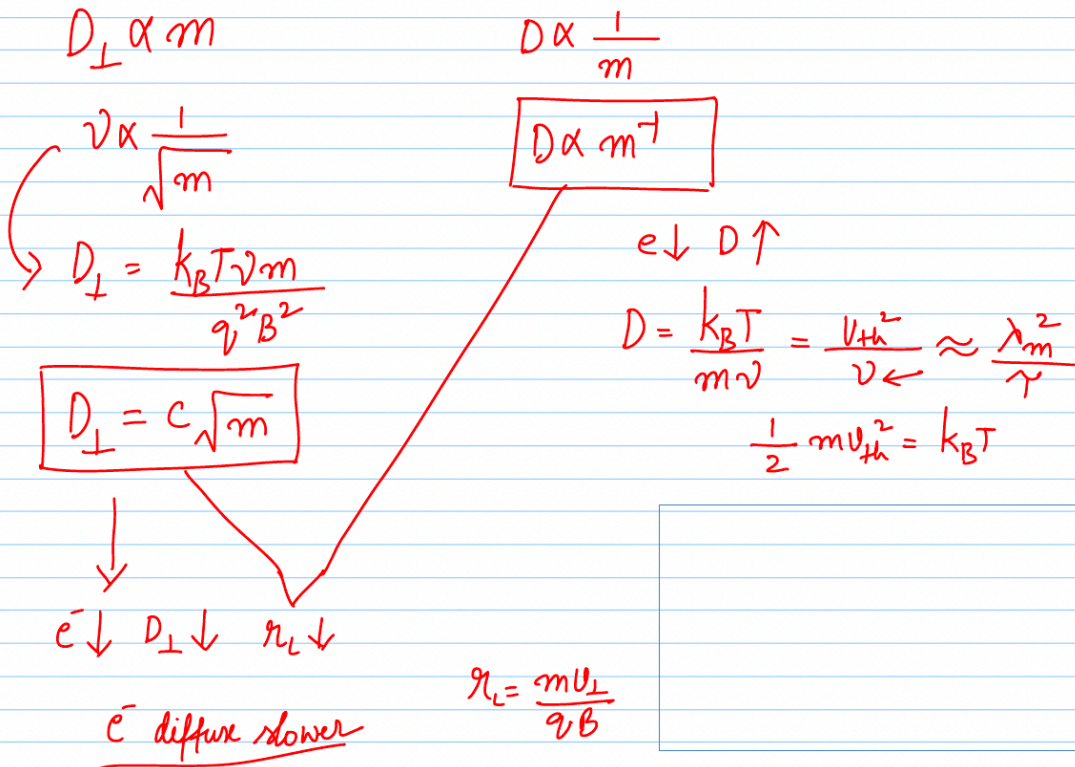 D⊥ ∝ m
ν ∝ 1/√m
D⊥ = k_B T ν m / q² B²
D⊥ = C √m
e⁻ ↓ D⊥ ↓ r_L ↓
e⁻ diffuse slower
D ∝ 1/m
D ∝ m⁻¹
e ↓ D ↑
D = k_B T / mν = v_th² / ν ← ≈ λ_m² / τ
1/2 m v_th² = k_B T
r_L = m v⊥ / qB